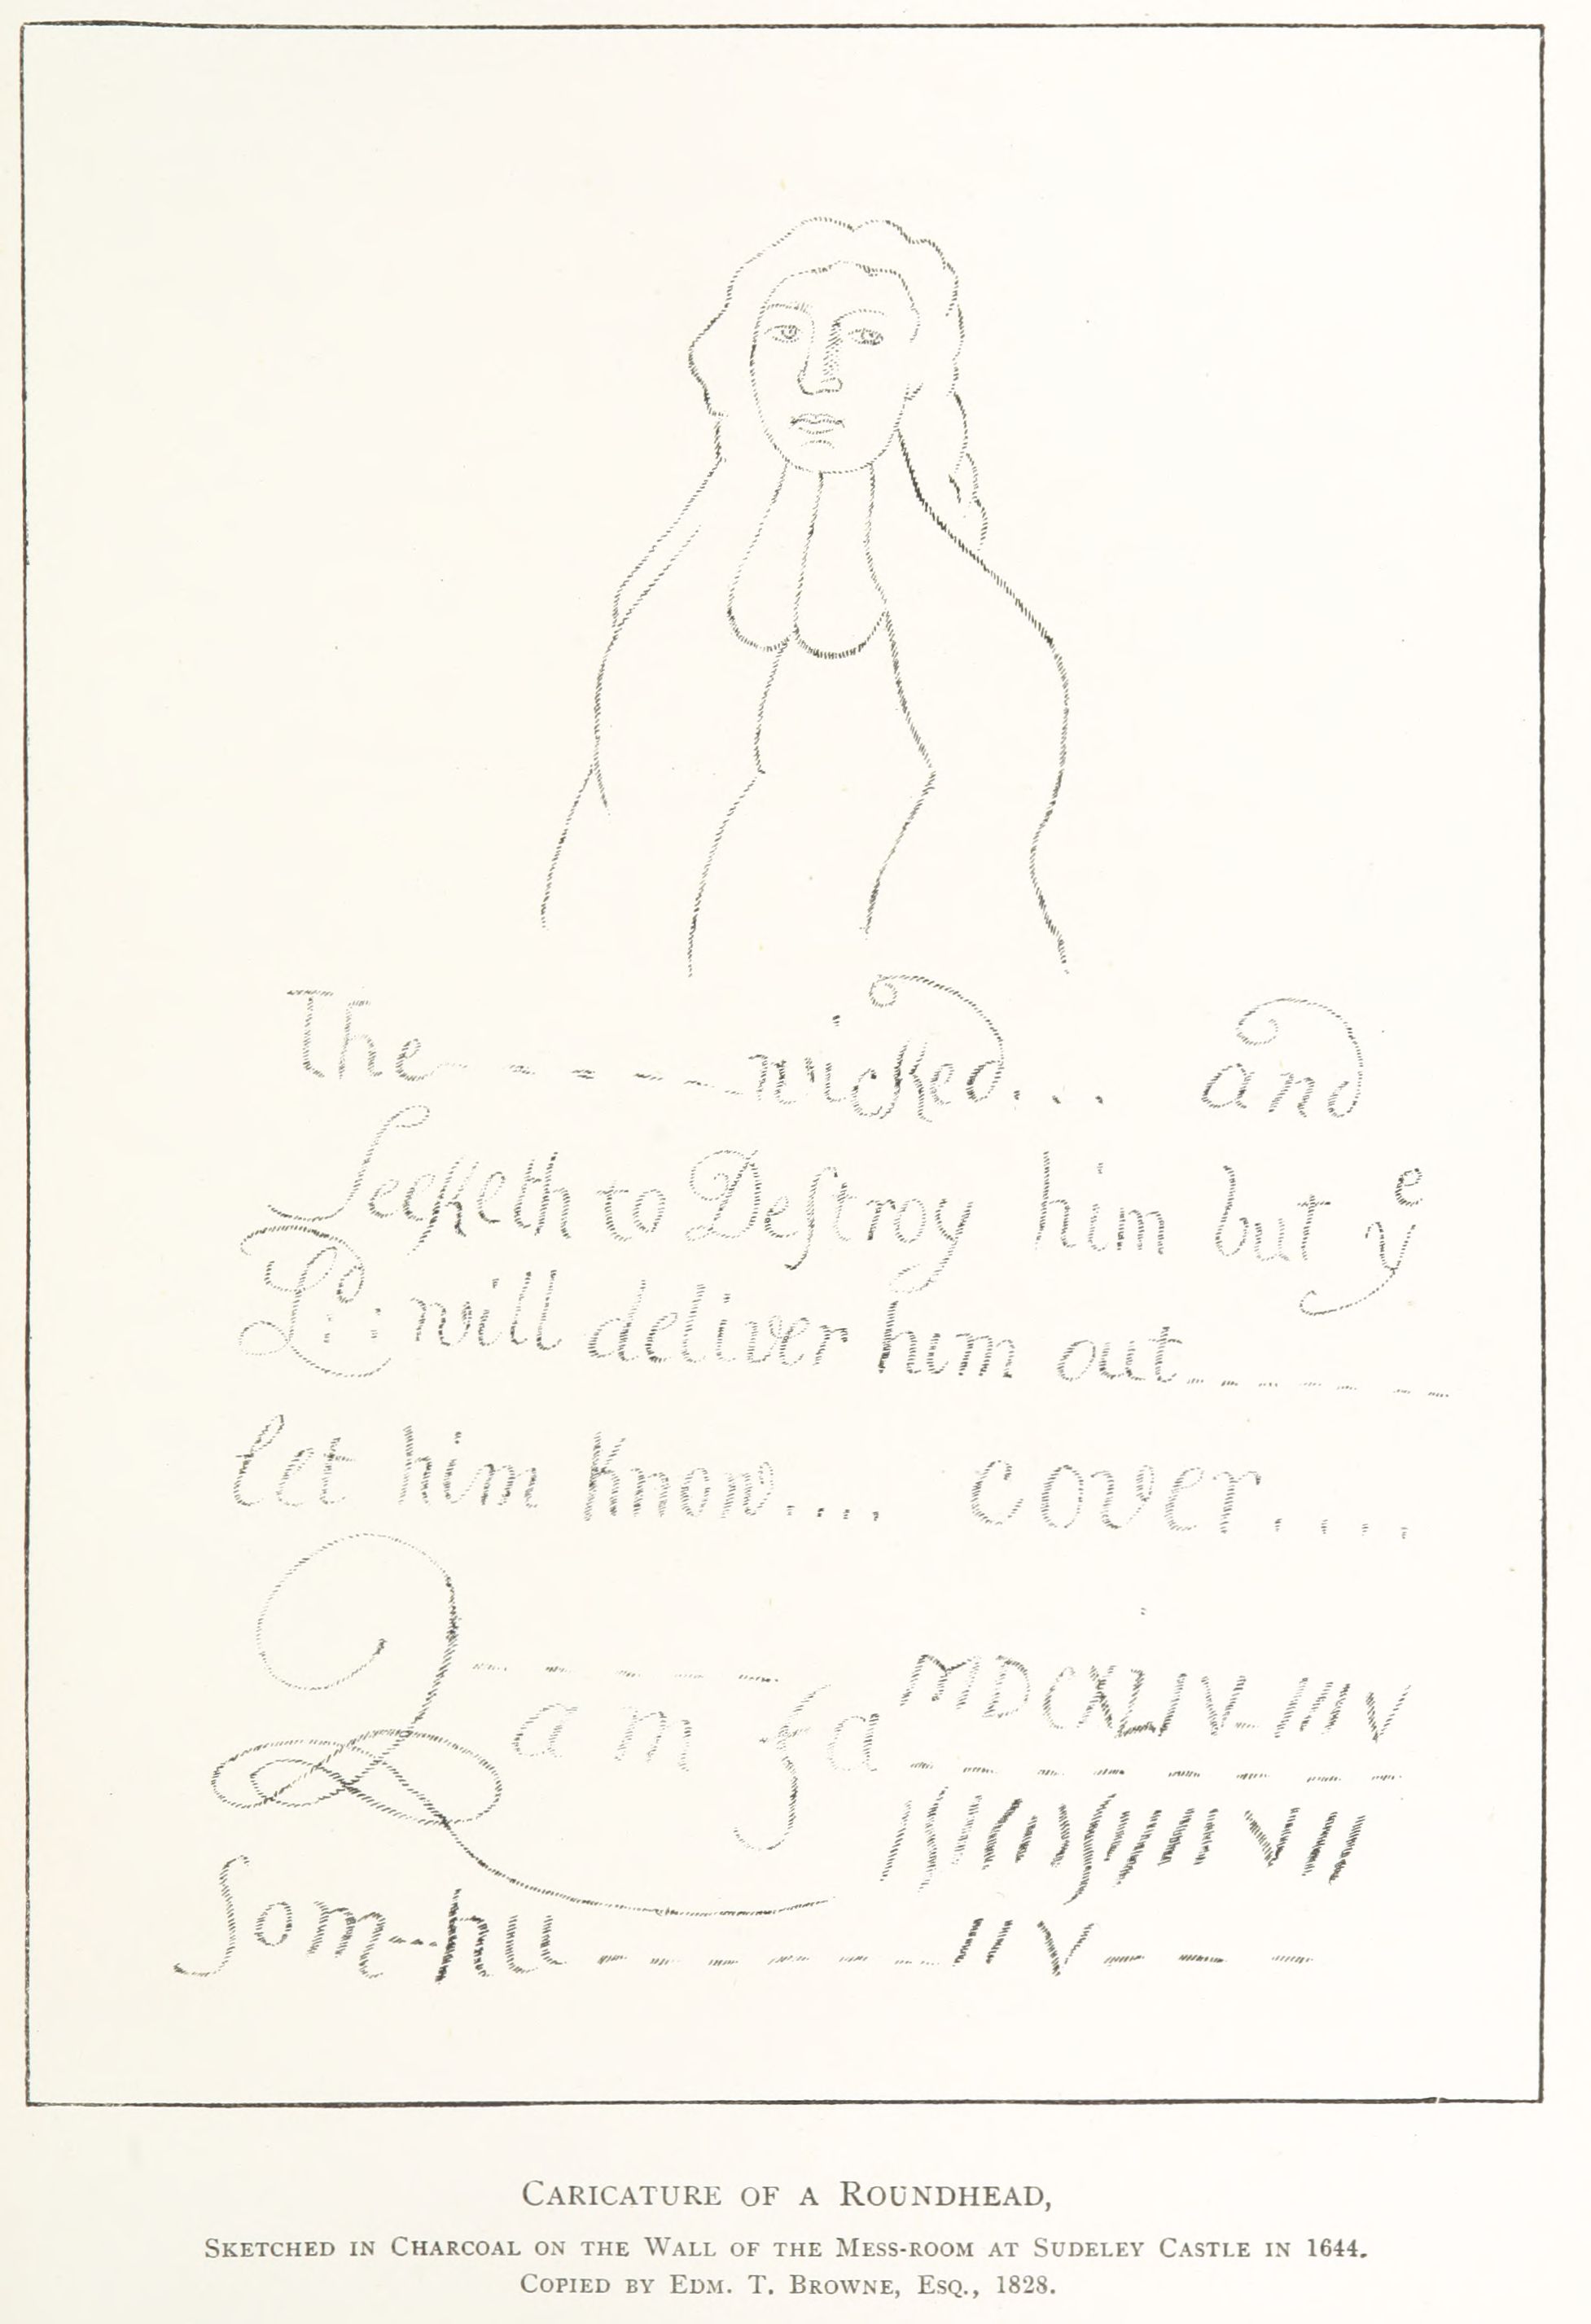 The - - - - - wicked... and
Seeketh to Destroy him but yᵉ
Lᵈ:: will deliver him out - - - - - -
let him know.... cover....
- - - - -
am MDCXLIV - IIIV
VII
Som--hu - - - - - - - IIV - - -
CARICATURE OF A ROUNDHEAD,
SKETCHED IN CHARCOAL ON THE WALL OF THE MESS-ROOM AT SUDELEY CASTLE IN 1644.
COPIED BY EDM. T. BROWNE, ESQ., 1828.